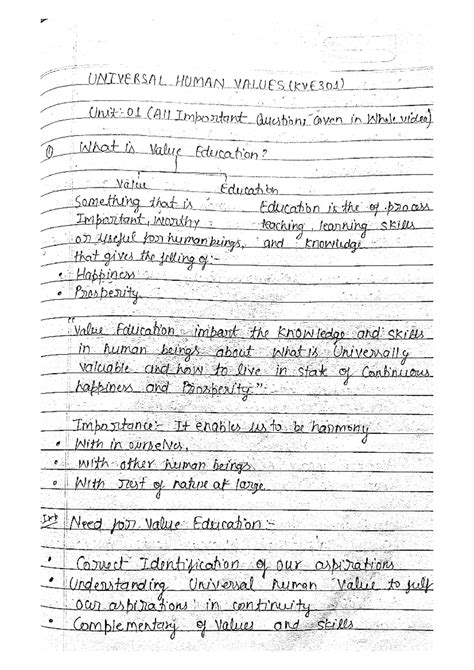 UNIVERSAL HUMAN VALUES (KVE301)
Unit:-01 (All Important Questions Given in Whole video)
① What is Value Education?
Value Education
Something that is Education is the of process
Important, worthy teaching, learning skills
or useful for human beings, and knowledge
that gives the felling of:-
• Happiness
• Prosperity.
"Value Education impart the knowledge and skills
in human beings about what is Universally
valuable and how to live in state of Continuous
happiness and Prosperity".
Importance:- It enables us to be harmony
• With in ourselves,
• With other human beings
• With rest of nature at large
Imp Need for Value Education:-
• Correct Identification of our aspirations
• Understanding Universal human Value to fulf
our aspirations in continuity
• Complementary of values and skills